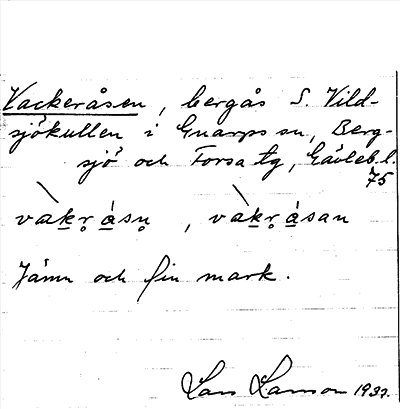 Vackeråsen, bergås S. Vild-
sjökullen i Gnarps sn, Berg-
sjö och Forsa tg, Gävleb. l.
75
vàk̲r̥ á̲sn̥, vàk̲r̥ á̲san
Jämn och fin mark.
Lars Larsson 1937.